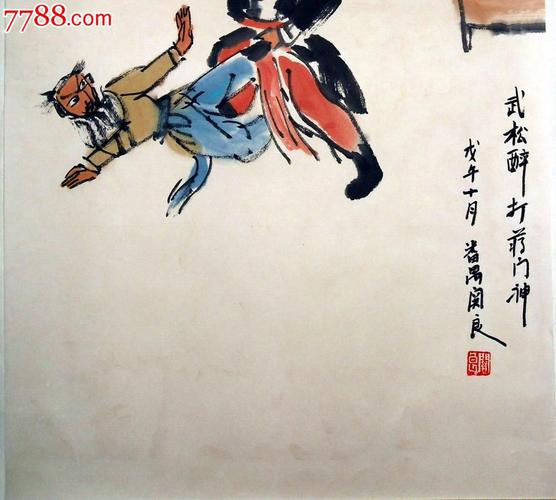 7788.com
武松醉打蒋门神
戊午十月 番禺关良
關良